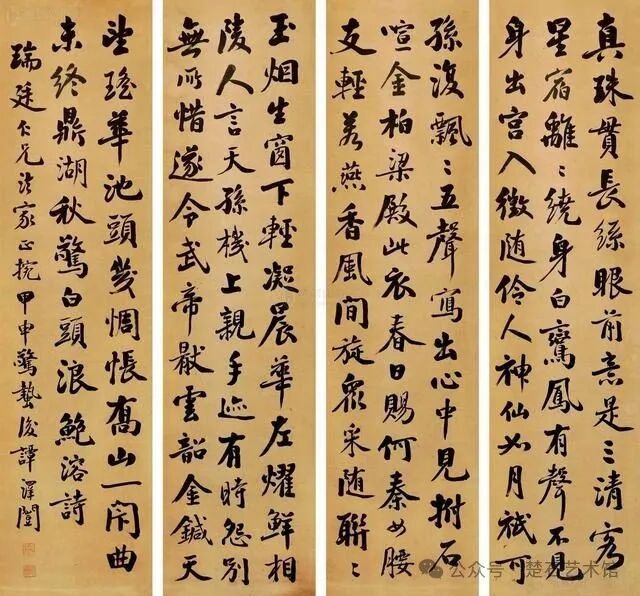 真珠貫長絲眼前意是三清客
星宿離〻繞身白鸞鳳有聲不見
身出宮入徵随伶人神仙如月秪可
孫復飄〻五聲寫出心中見拊石
喧金柏梁殿此衣春日賜何秦女腰
支輕若燕香風間旋衆采随聯〻
玉烟生窗下輕凝晨華左耀鮮相
陵人言天孫機上親手迹有時怨別
無所惜遂令武帝厭雲韶金鍼天
坐瑤華池頭幾惆悵喬山一閉曲
未終鼎湖秋驚白頭浪鮑溶詩
瑞廷仁兄法家正捥甲申驚蟄後譚澤闓
公众号·楚石艺术馆